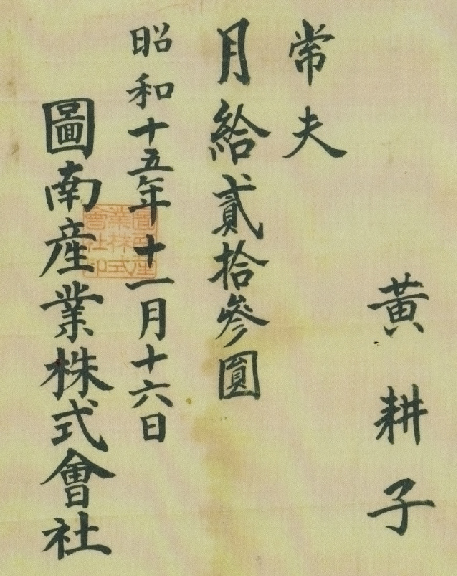 黃耕子
常夫
月給貳拾參圓
昭和十五年十一月十六日
圖南産業株式會社
圖南產業株式會社印